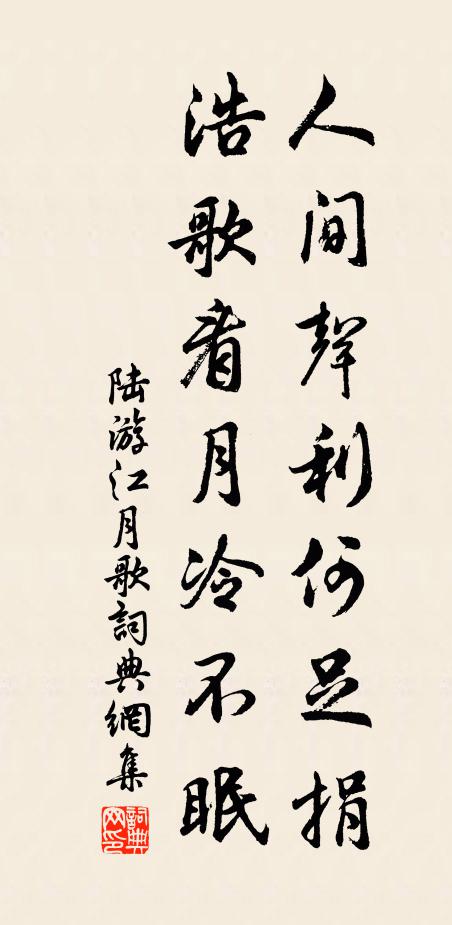 人間聲利何足捐
浩歌看月冷不眠
陸游江月歌詞典網集
詞典網印